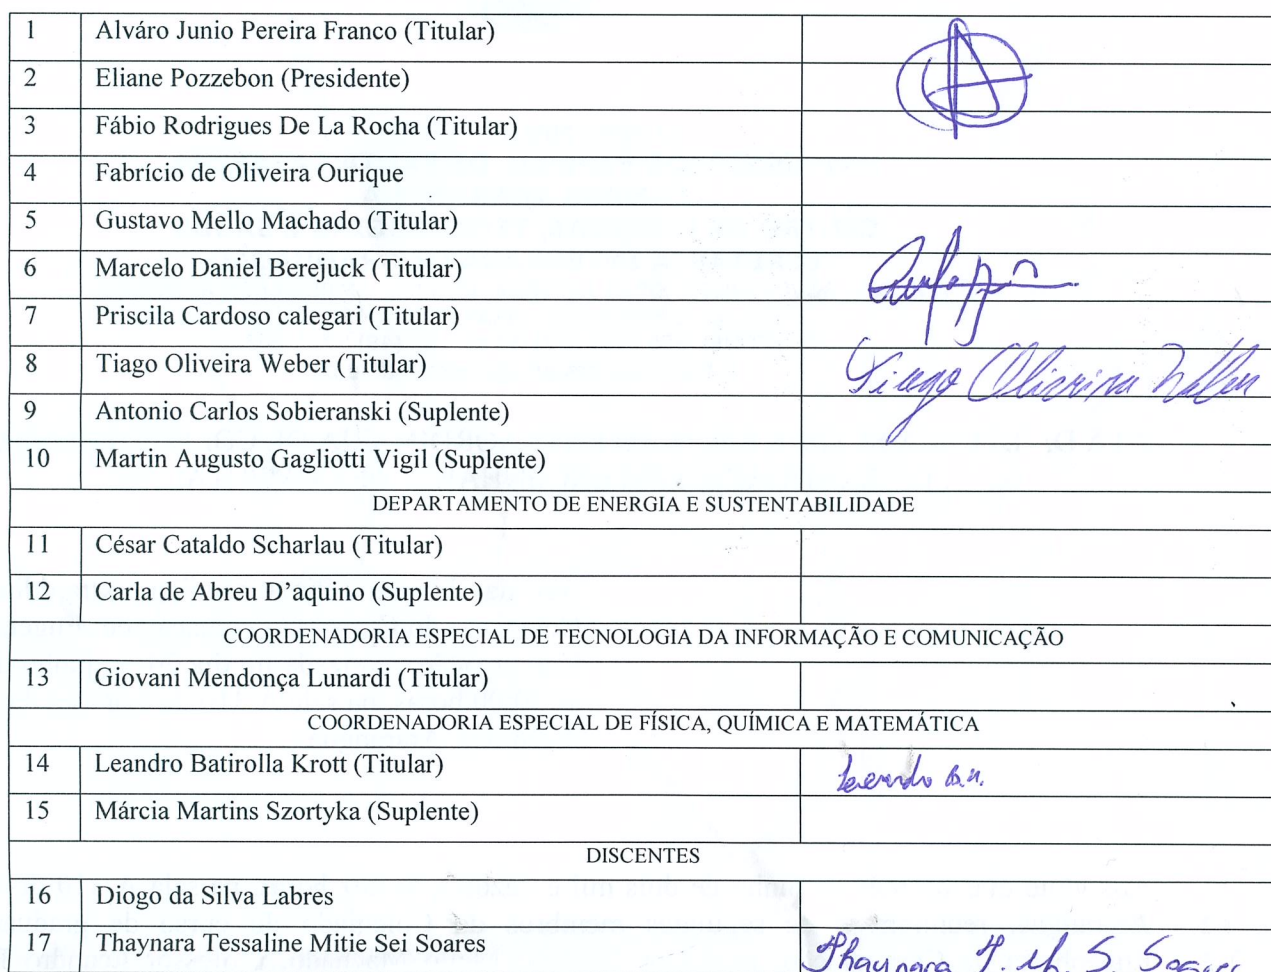 1 Alváro Junio Pereira Franco (Titular)
2 Eliane Pozzebon (Presidente)
3 Fábio Rodrigues De La Rocha (Titular)
4 Fabrício de Oliveira Ourique
5 Gustavo Mello Machado (Titular)
6 Marcelo Daniel Berejuck (Titular)
7 Priscila Cardoso calegari (Titular)
8 Tiago Oliveira Weber (Titular) Tiago Oliveira Weber
9 Antonio Carlos Sobieranski (Suplente)
10 Martin Augusto Gagliotti Vigil (Suplente)
DEPARTAMENTO DE ENERGIA E SUSTENTABILIDADE
11 César Cataldo Scharlau (Titular)
12 Carla de Abreu D’aquino (Suplente)
COORDENADORIA ESPECIAL DE TECNOLOGIA DA INFORMAÇÃO E COMUNICAÇÃO
13 Giovani Mendonça Lunardi (Titular)
COORDENADORIA ESPECIAL DE FÍSICA, QUÍMICA E MATEMÁTICA
14 Leandro Batirolla Krott (Titular) Leandro B.K.
15 Márcia Martins Szortyka (Suplente)
DISCENTES
16 Diogo da Silva Labres
17 Thaynara Tessaline Mitie Sei Soares Thaynara T. M. S. Soares